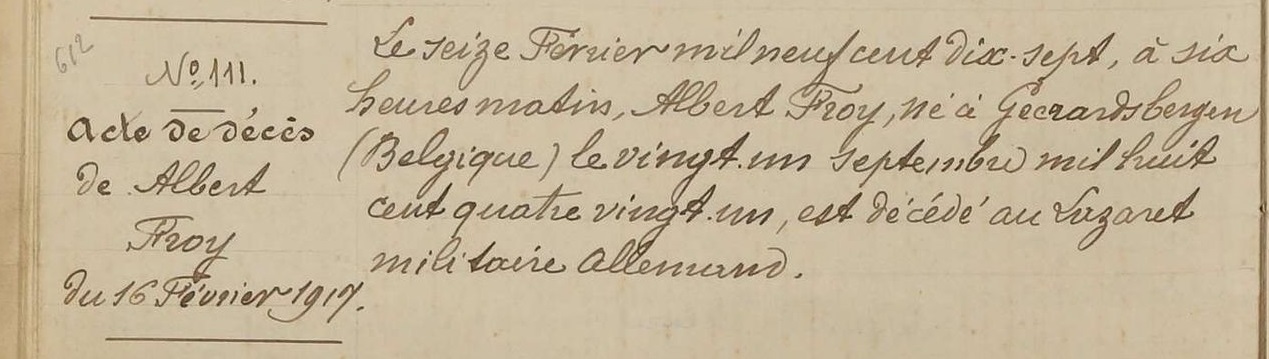 612
No. 111.
Acte de décès
de Albert
Froy
du 16 Février 1917.
Le seize Février mil neuf cent dix-sept, à six
heures matin, Albert Froy, né à Geerardsbergen
(Belgique) le vingt-un septembre mil huit
cent quatre vingt-un, est décédé au Lazaret
militaire Allemand.